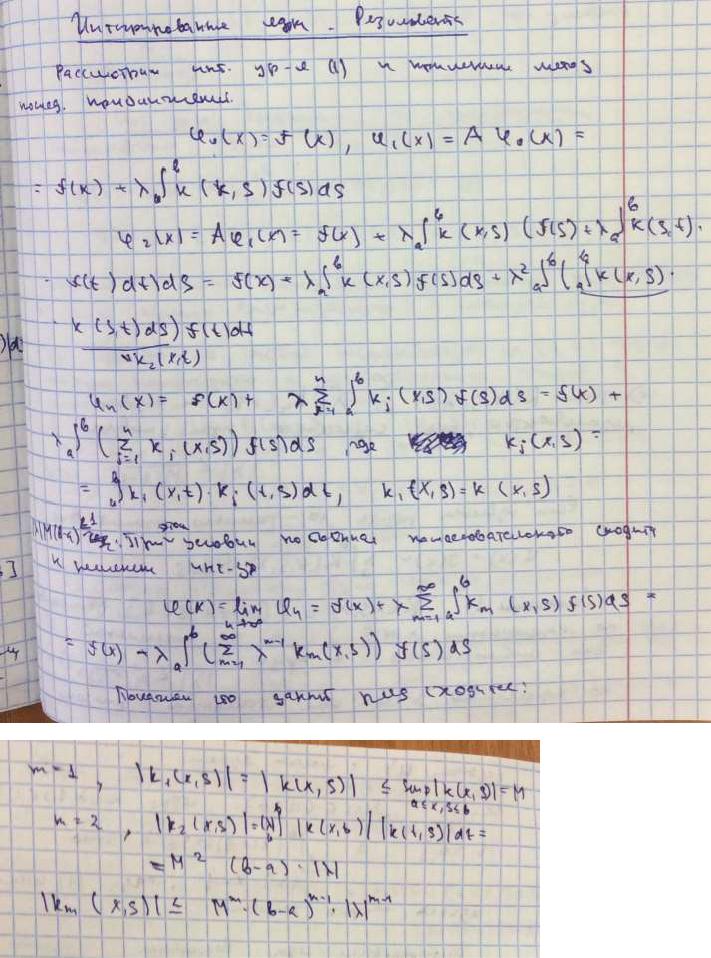 Интегрирование ядра. Резольвента
Рассмотрим инт. ур-е (1) и применим метод
послед. приближений.
φ₀(x) = f(x), φ₁(x) = A φ₀(x) =
= f(x) + λ ∫ₐᵇ k(x,s) f(s) ds
φ₂(x) = Aφ₁(x) = f(x) + λ ∫ₐᵇ k(x,s) (f(s) + λ ∫ₐᵇ k(s,t) ·
· f(t) dt) ds = f(x) + λ ∫ₐᵇ k(x,s) f(s) ds + λ² ∫ₐᵇ ( ∫ₐᵇ k(x,s) ·
· k(s,t) ds) f(t) dt
k₂(x,t)
φₙ(x) = f(x) + λ Σⁿ ∫ₐᵇ kⱼ(x,s) f(s) ds = f(x) +
λ ∫ₐᵇ ( Σⁿⱼ₌₁ kⱼ(x,s)) f(s) ds, где kⱼ(x,s) =
= ∫ₐᵇ k₁(x,t) · kⱼ(t,s) dt, k₁(x,s) = k(x,s)
|λ|M(b-a) < 1. При этом условии последовательность сходится
к решению инт-ур
φ(x) = lim φₙ = f(x) + λ Σ∞ₘ₌₁ ∫ₐᵇ kₘ(x,s) f(s) ds =
n→∞
= f(x) + λ ∫ₐᵇ ( Σ∞ₘ₌₁ λᵐ⁻¹ kₘ(x,s)) f(s) ds
Покажем что данный ряд сходится:
m = 1, |k₁(x,s)| = |k(x,s)| ≤ sup |k(x,s)| = M
a≤x,s≤b
m = 2, |k₂(x,s)| = |λ| ∫ₐᵇ |k(x,t)| |k(t,s)| dt =
= M² (b-a) · |λ|
|kₘ(x,s)| ≤ Mᵐ · (b-a)ᵐ⁻¹ · |λ|ᵐ⁻¹